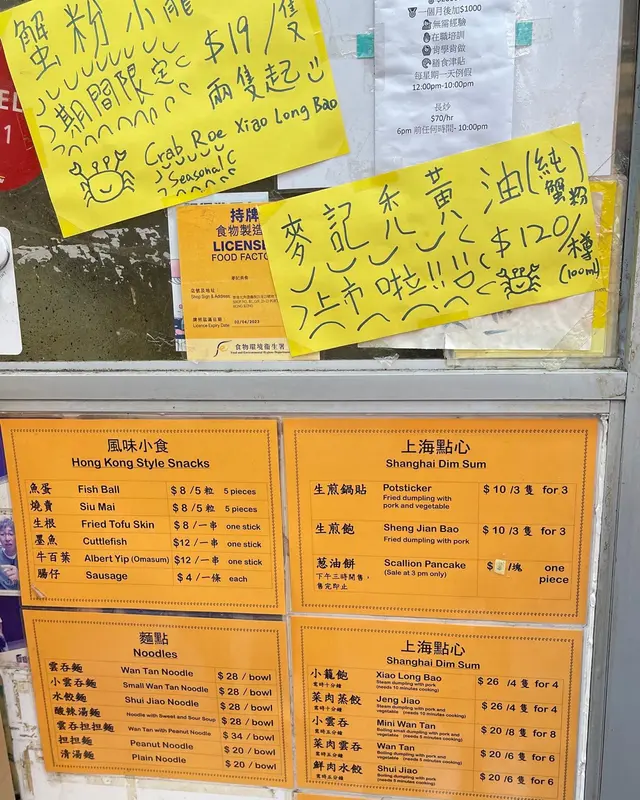 蟹粉小籠
期間限定 $19/隻
兩隻起
Crab Roe Xiao Long Bao
Seasonal
一個月後加$1000
無需經驗
在職培訓
肯學肯做
膳食津貼
每星期一天例假
12:00pm-10:00pm
長炒
$70/hr
6pm 前任何時間- 10:00pm
麥記禿黃油(純蟹粉)
上市啦!!! $120/樽
(100ml)
持牌
食物製造
LICENS
FOOD FACTO
Shop Sign & Address
Licence Expiry Date
食物環境衞生署
Food and Environmental Hygiene Department
風味小食
Hong Kong Style Snacks
魚蛋 Fish Ball $8/5粒 5 pieces
燒賣 Siu Mai $8/5粒 5 pieces
生根 Fried Tofu Skin $8/一串 one stick
墨魚 Cuttlefish $12/一串 one stick
牛百葉 Albert Yip (Omasum) $12/一串 one stick
腸仔 Sausage $4/一條 each
上海點心
Shanghai Dim Sum
生煎鍋貼 Potsticker $10/3隻 for 3
Fried dumpling with
pork and vegetable
生煎飽 Sheng Jian Bao $10/3隻 for 3
Fried dumpling with pork
葱油餅 Scallion Pancake $ /塊 one piece
下午三時開售， (Sale at 3 pm only)
售完即止
麵點
Noodles
雲吞麵 Wan Tan Noodle $28 / bowl
小雲吞麵 Small Wan Tan Noodle $28 / bowl
水餃麵 Shui Jiao Noodle $28 / bowl
酸辣湯麵 Noodle with Sweet and Sour Soup $28 / bowl
雲吞担担麵 Wan Tan with Peanut Noodle $34 / bowl
担担麵 Peanut Noodle $20 / bowl
清湯麵 Plain Noodle $20 / bowl
上海點心
Shanghai Dim Sum
小籠飽 Xiao Long Bao $26 /4隻 for 4
需時十分鐘 Steam dumpling with pork
(needs 10 minutes cooking)
菜肉蒸餃 Jeng Jiao $26 /4隻 for 4
需時十分鐘 Steam dumpling with pork and
vegetable (needs 10 minutes cooking)
小雲吞 Mini Wan Tan $20 /8隻 for 8
需時五分鐘 Boiling small dumpling with pork and
菜肉雲吞 Wan Tan $20 /6隻 for 6
需時五分鐘 Boiling dumpling with pork and
vegetable (needs 5 minutes cooking)
鮮肉水餃 Shui Jiao $20 /6隻 for 6
需時五分鐘 Boiling dumpling with pork
(needs 5 minutes cooking)